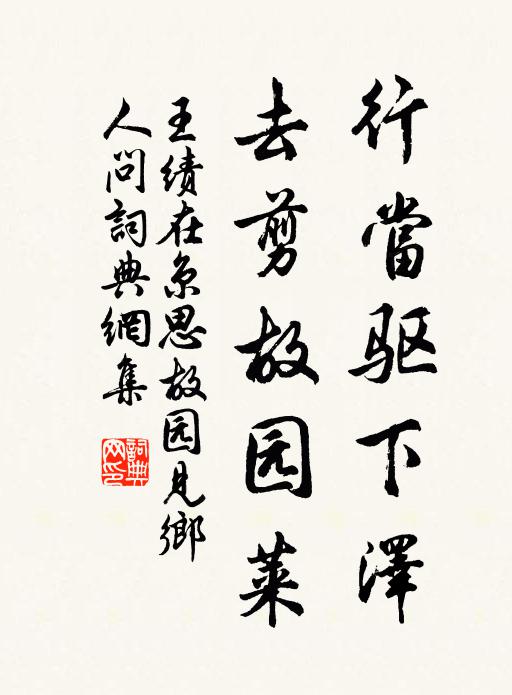 行當驱下澤
去剪故园萊
王绩在京思故园见鄉
人問詞典網集
詞典
网印